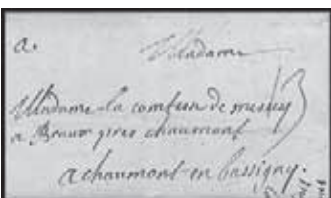 a.
Madame
Madame la comtesse de messey
a Braux pres chaumont
13
a chaumont en bassigny.